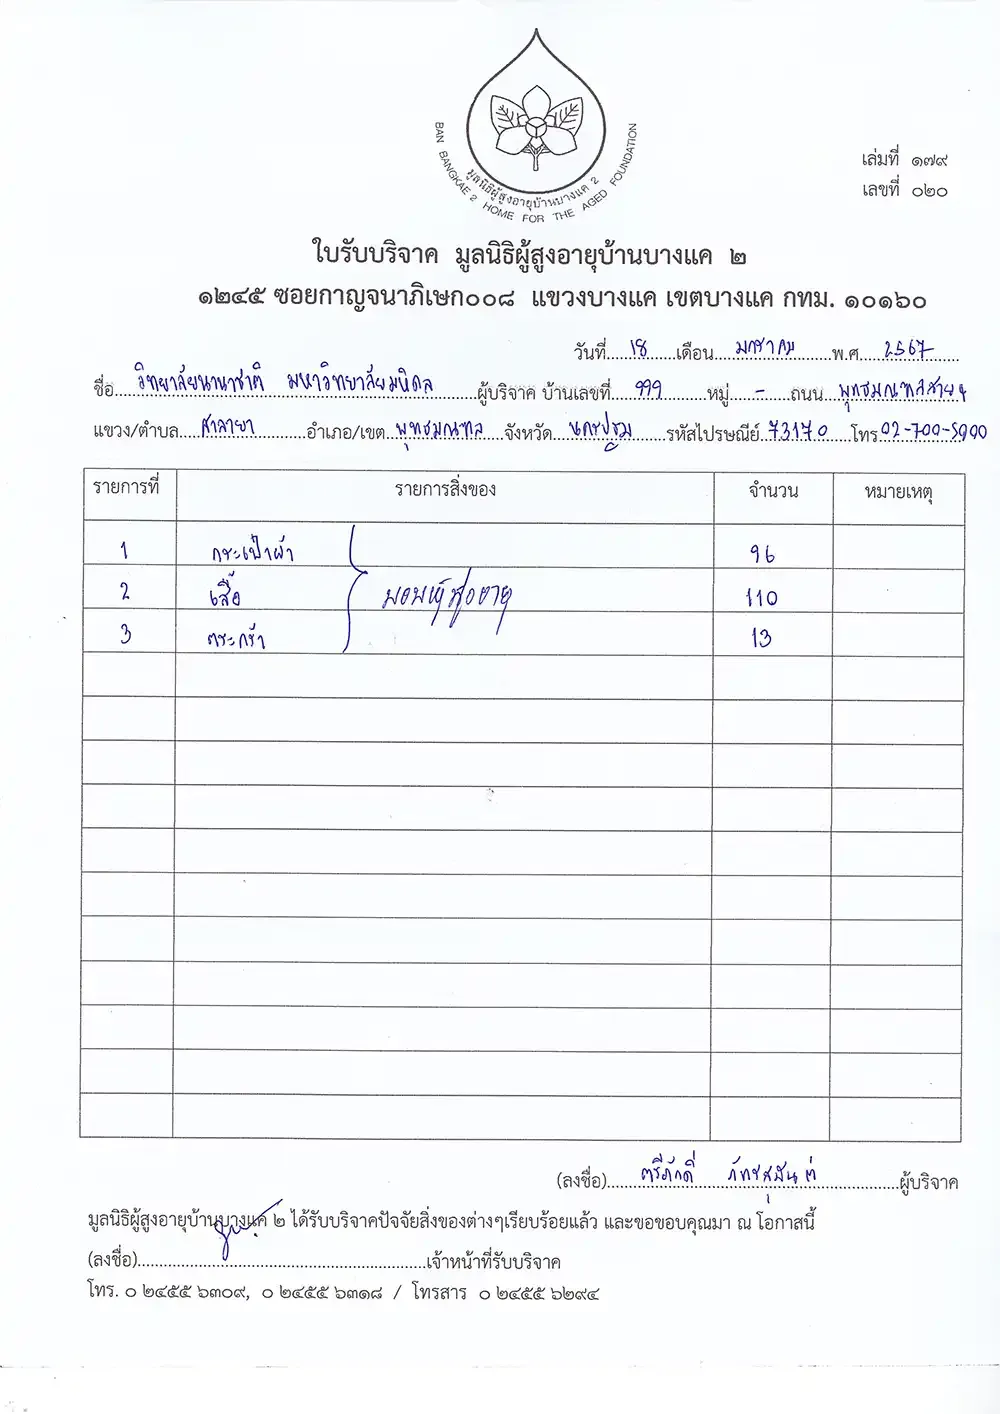 มูลนิธิผู้สูงอายุบ้านบางแค 2
BAN BANGKAE 2 HOME FOR THE AGED FOUNDATION
เล่มที่ ๑๗๙
เลขที่ ๐๒๐
ใบรับบริจาค มูลนิธิผู้สูงอายุบ้านบางแค ๒
๑๒๔๕ ซอยกาญจนาภิเษก๐๐๘ แขวงบางแค เขตบางแค กทม. ๑๐๑๖๐
วันที่ 18 เดือน มกราคม พ.ศ. 2567
ชื่อ วิทยาลัยนานาชาติ มหาวิทยาลัยมหิดล ผู้บริจาค บ้านเลขที่ 999 หมู่ - ถนน พุทธมณฑลสาย 4
แขวง/ตำบล ศาลายา อำเภอ/เขต พุทธมณฑล จังหวัด นครปฐม รหัสไปรษณีย์ 73170 โทร 02-700-5000
รายการที่ รายการสิ่งของ จำนวน หมายเหตุ
1 กระเป๋าผ้า 96
2 เสื้อ มอบให้ผู้สูงอายุ 110
3 ตระกร้า 13
(ลงชื่อ) ตรีภักดิ์ ผู้บริจาค
มูลนิธิผู้สูงอายุบ้านบางแค ๒ ได้รับบริจาคปัจจัยสิ่งของต่างๆเรียบร้อยแล้ว และขอขอบคุณมา ณ โอกาสนี้
(ลงชื่อ) เจ้าหน้าที่รับบริจาค
โทร. ๐ ๒๔๕๕ ๖๓๐๙, ๐ ๒๔๕๕ ๖๓๑๘ / โทรสาร ๐ ๒๔๕๕ ๖๒๙๔